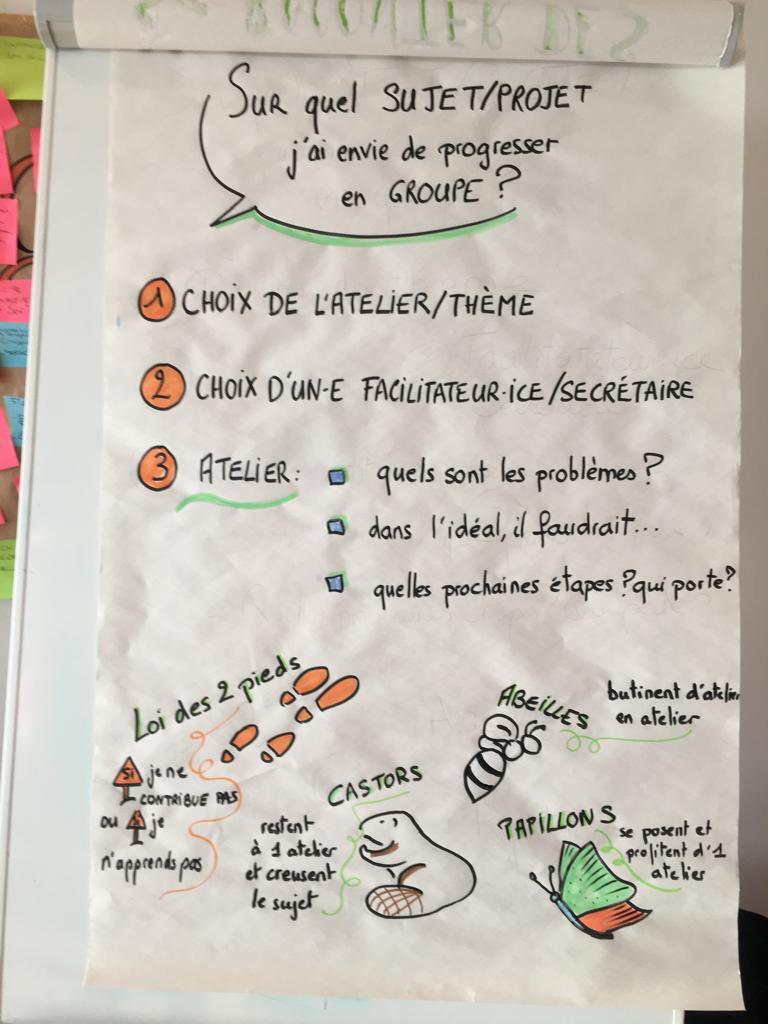 SUR quel SUJET/PROJET
j'ai envie de progresser
en GROUPE ?
1 CHOIX DE L'ATELIER/THÈME
2 CHOIX D'UN·E FACILITATEUR·ICE/SECRÉTAIRE
3 ATELIER :
quels sont les problèmes ?
dans l'idéal, il faudrait...
quelles prochaines étapes ? qui porte ?
Loi des 2 pieds
SI je ne
CONTRIBUE PAS
ou SI je
n'apprends pas
CASTORS
restent
à 1 atelier
et creusent
le sujet
ABEILLES
butinent d'atelier
en atelier
PAPILLONS
se posent et
profitent d'1
atelier